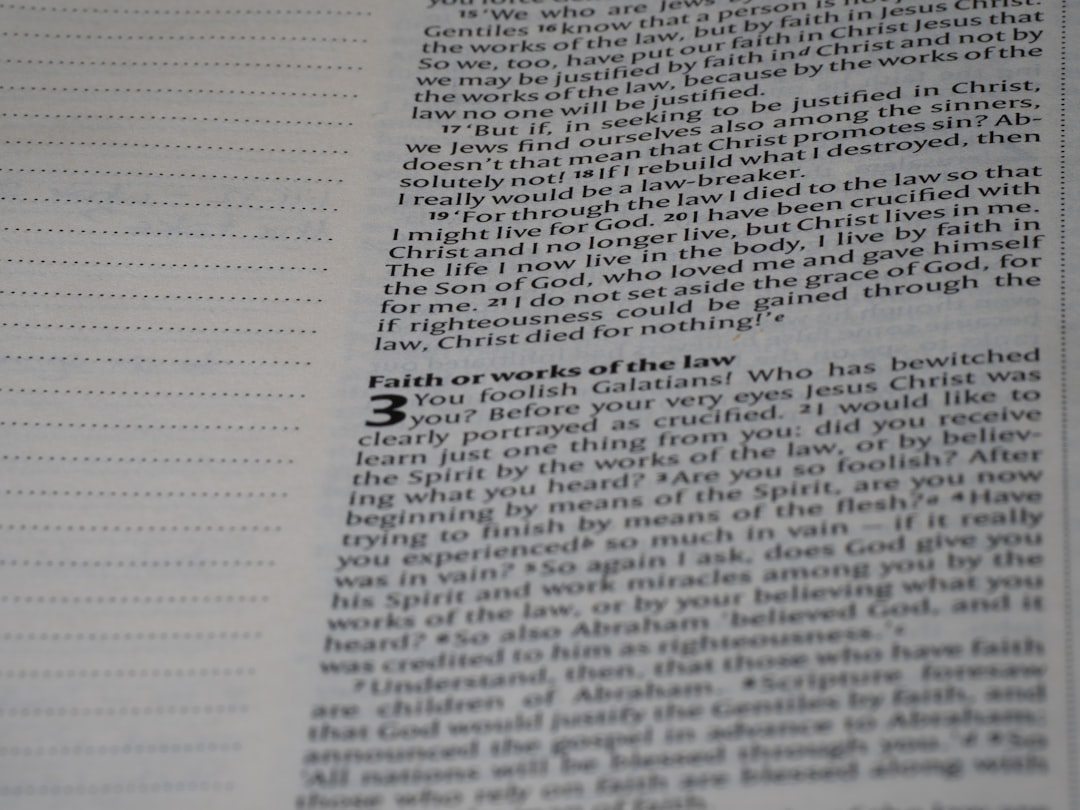 15 'We who are Jews by
Gentiles 16 know that a person is not
the works of the law, but by faith in Jesus Christ.
So we, too, have put our faith in Christ Jesus that
we may be justified by faith in d Christ and not by
the works of the law, because by the works of the
law no one will be justified.
17 'But if, in seeking to be justified in Christ,
we Jews find ourselves also among the sinners,
doesn't that mean that Christ promotes sin? Ab-
solutely not! 18 If I rebuild what I destroyed, then
I really would be a law-breaker.
19 'For through the law I died to the law so that
I might live for God. 20 I have been crucified with
Christ and I no longer live, but Christ lives in me.
The life I now live in the body, I live by faith in
the Son of God, who loved me and gave himself
for me. 21 I do not set aside the grace of God, for
if righteousness could be gained through the
law, Christ died for nothing!' e
Faith or works of the law
3 You foolish Galatians! Who has bewitched
you? Before your very eyes Jesus Christ was
clearly portrayed as crucified. 2 I would like to
learn just one thing from you: did you receive
the Spirit by the works of the law, or by believ-
ing what you heard? 3 Are you so foolish? After
beginning by means of the Spirit, are you now
trying to finish by means of the flesh? a 4 Have
you experienced b so much in vain – if it really
was in vain? 5 So again I ask, does God give you
his Spirit and work miracles among you by the
works of the law, or by your believing what you
heard? 6 So also Abraham 'believed God, and it
was credited to him as righteousness.' c
7 Understand, then, that those who have faith
are children of Abraham. 8 Scripture foresaw
that God would justify the Gentiles by faith, and
announced the gospel in advance to Abraham:
'All nations will be blessed through you.' d 9 So
those who rely on faith are blessed along with
of faith.